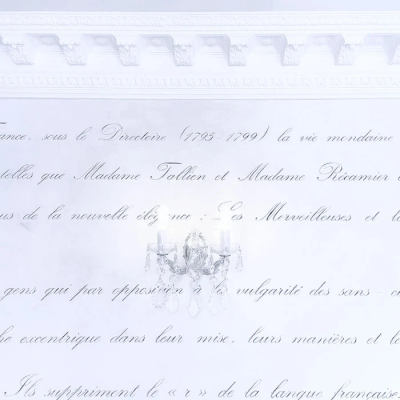 ance, sous le Directoire (1795-1799) la vie mondaine
telles que Madame Tallien et Madame Récamier
us de la nouvelle élégance : Les Merveilleuses et l
gens qui par opposition à la vulgarité des sans-c
he excentrique dans leur mise, leurs manières et le
Ils suppriment le « r » de la langue française